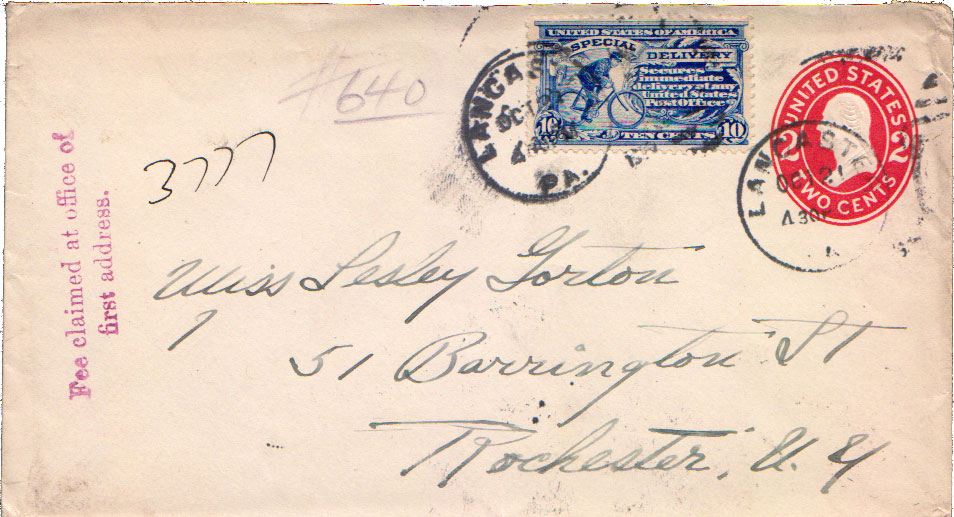 UNITED STATES OF AMERICA
SPECIAL DELIVERY
Secures
immediate
delivery at any
United States
Post Office
TEN CENTS 10
LANCAS
OCT 2
PA.
UNITED STATES
2 2
TWO CENTS
LANCASTE
OCT 21
430P
#640
3777
Fee claimed at office of
first address.
Miss Lesley Gorton
51 Barrington St
Rochester, N. Y